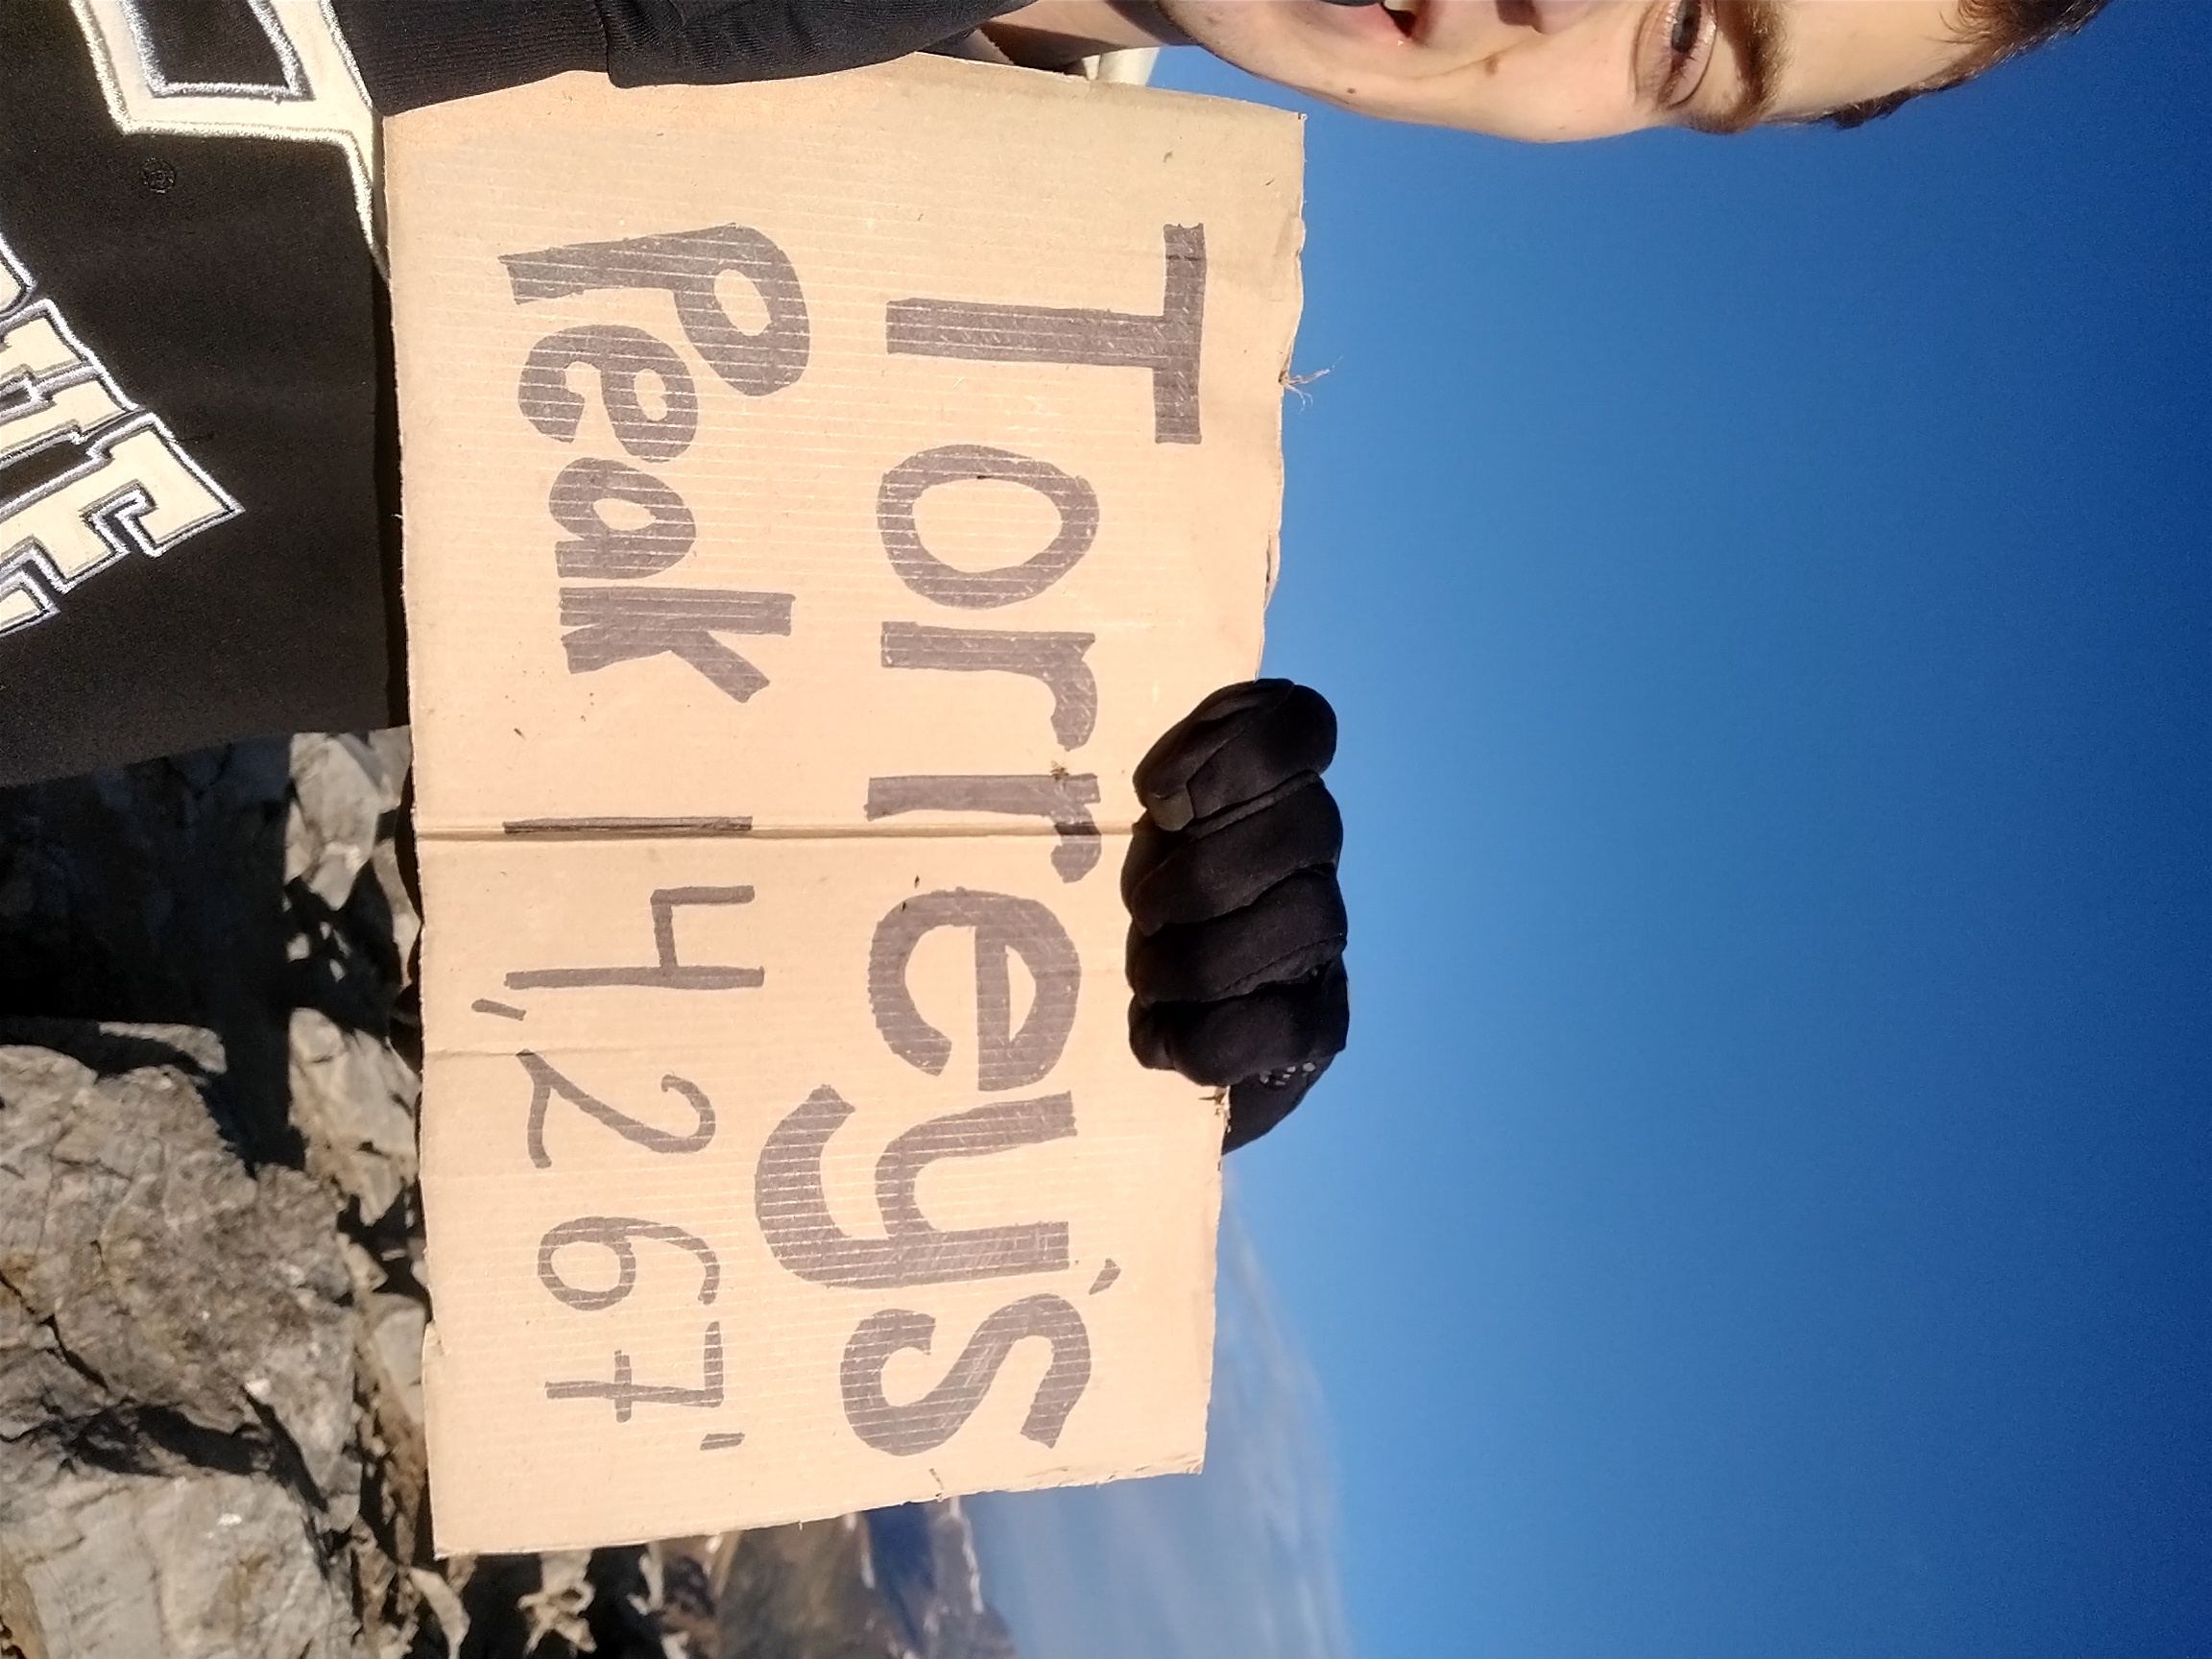 Torrey's
Peak 14,267'